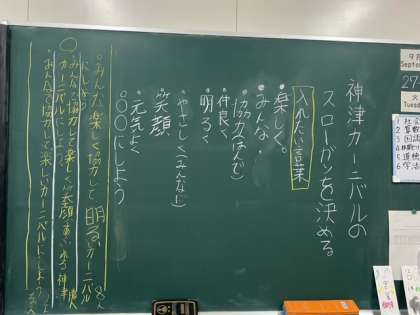 神津カーニバルの
スローガンを決める
入れたい言葉
・楽しく。
・みんな・
・協力(ぜんいんで)
・仲良く
・明るく
・やさしく(みんなに)
・笑顔
・元気よく
○○にしよう
・みんな楽しく協力して明るいカーニバル
にしよう
みんな協力して楽しく笑顔あふれる神津
カーニバルにしよう
・みんなで協力して楽しいカーニバルにしよう
9月
Septem
27
火
Tuesda
1
2
3
4
5
6